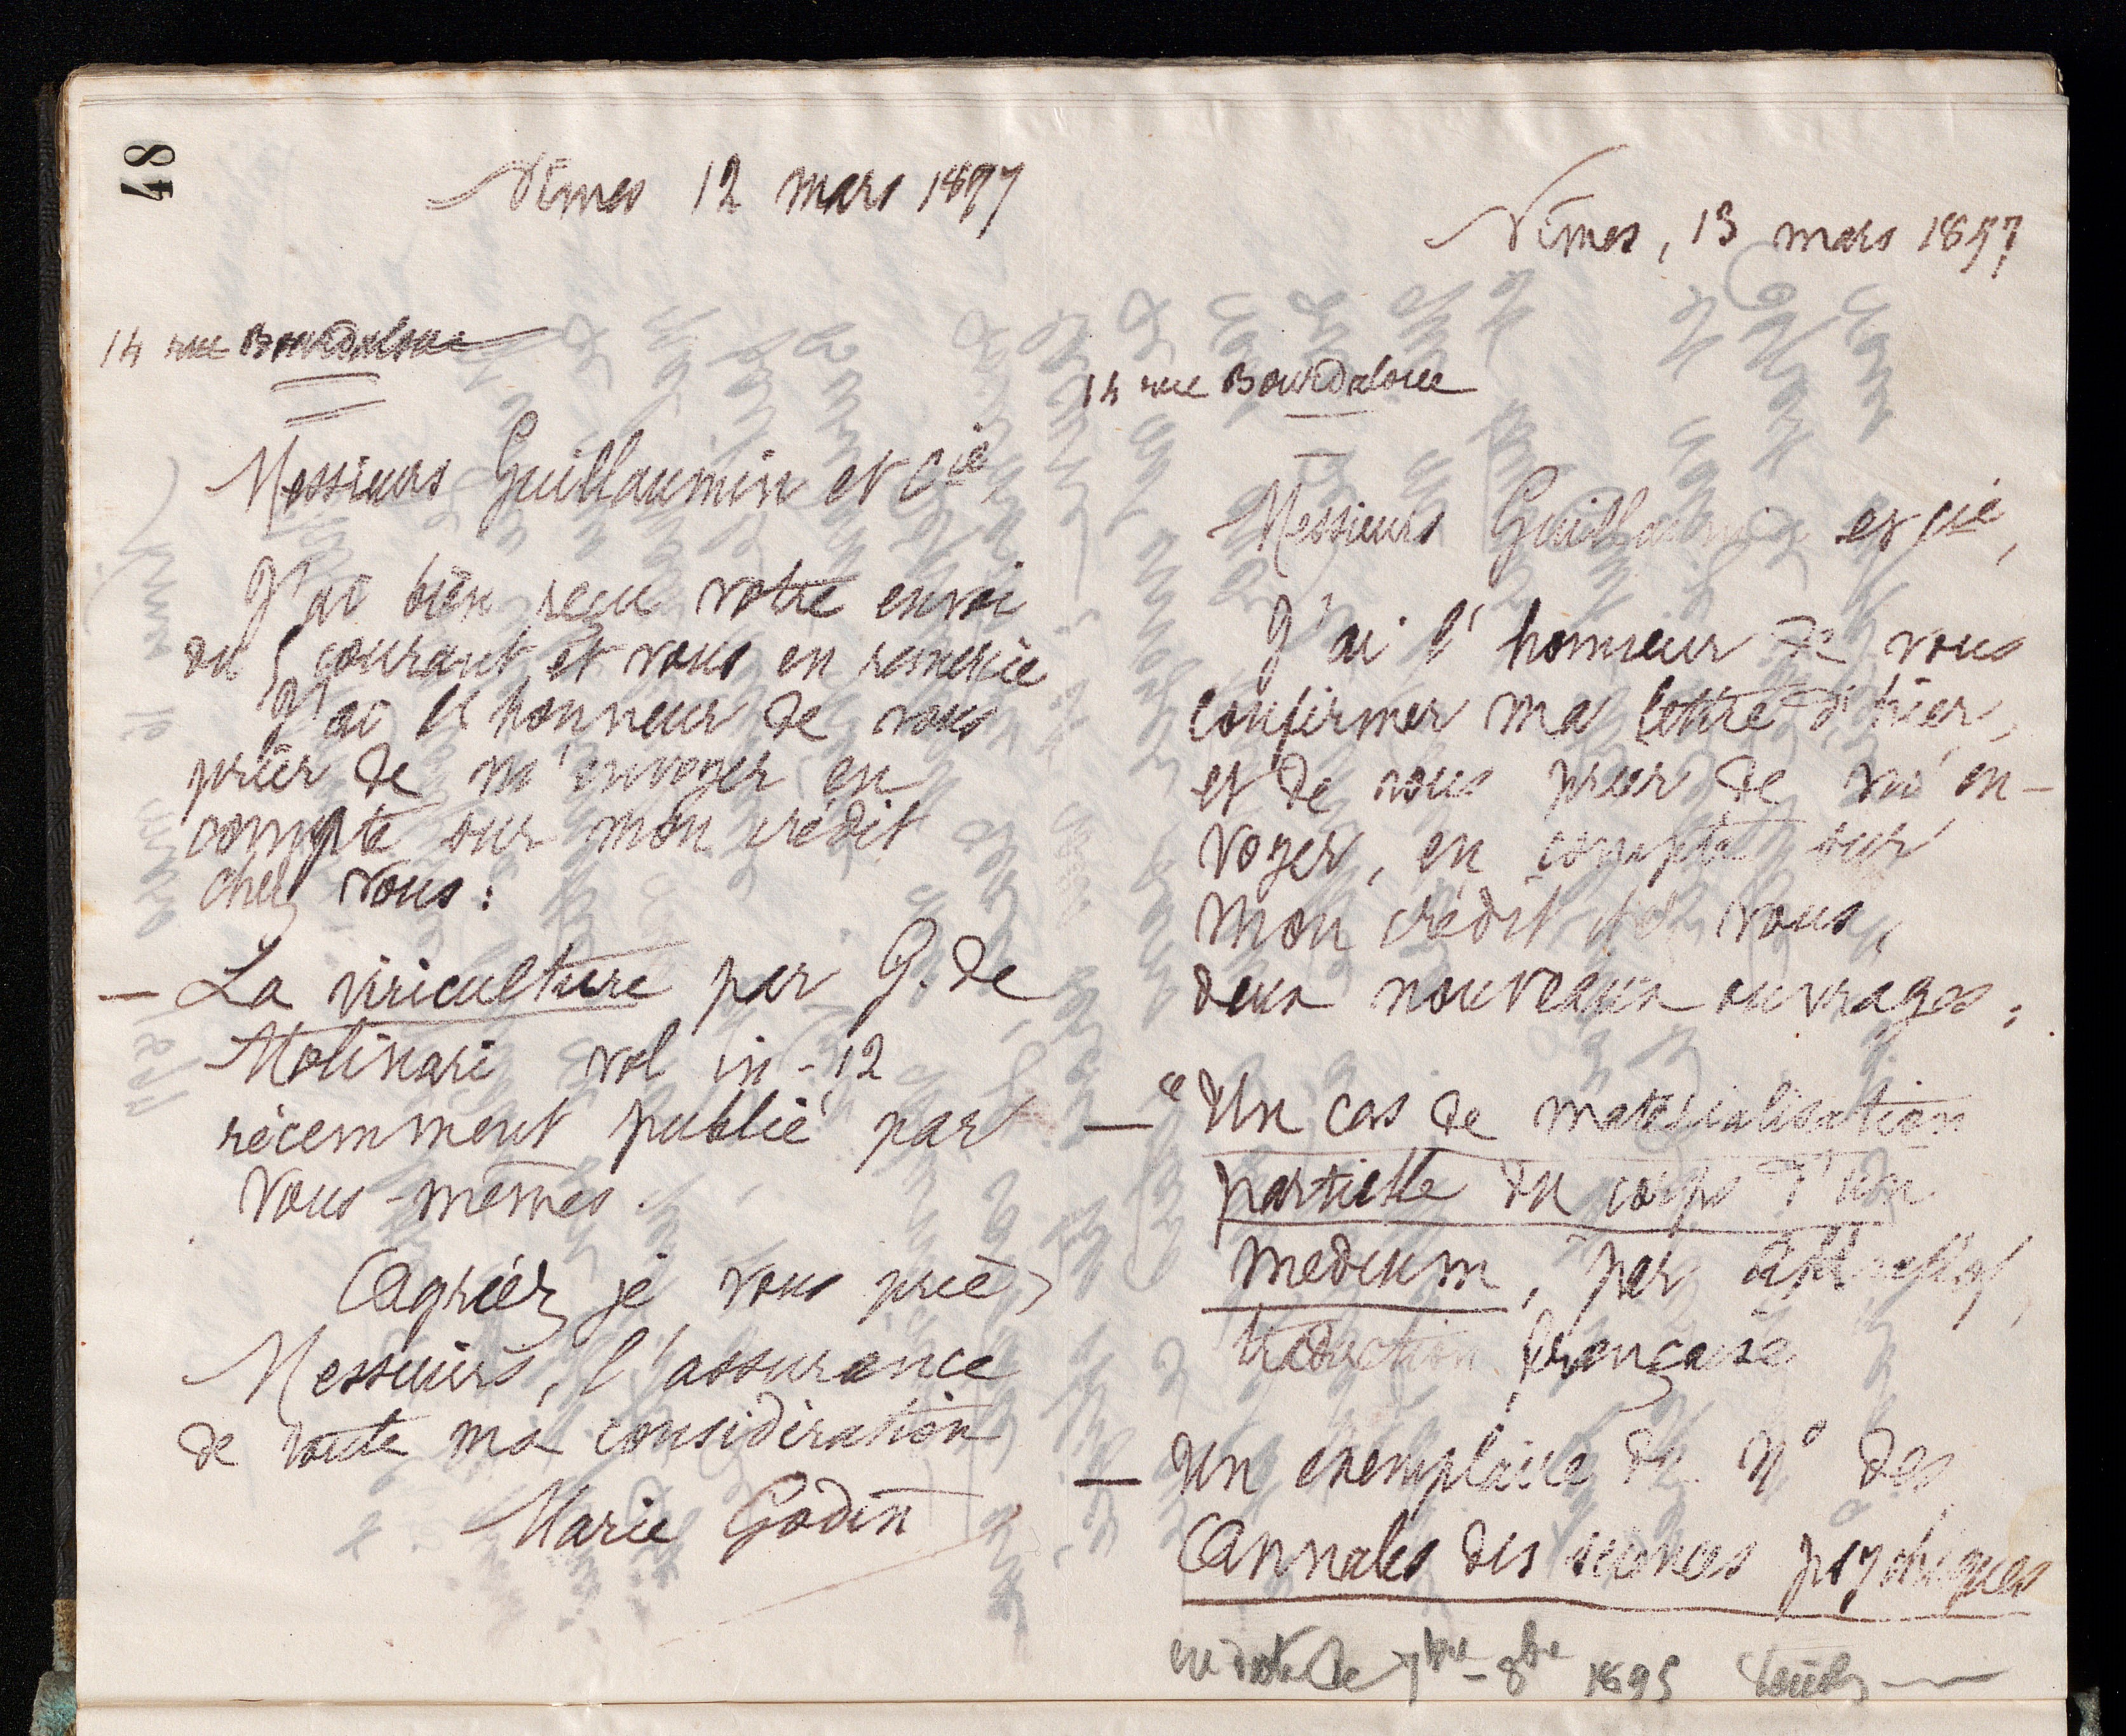 48
Nîmes 12 mars 1897
14 rue Bourdaloue
Messieurs Guillaumin et Cie
J'ai bien reçu votre envoi
du 5 courant et vous en remercie
J'ai l'honneur de vous
prier de m'envoyer en
compte sur mon crédit
chez vous :
— La viriculture par G. de
Molinari vol in-12
récemment publié par
vous-mêmes.
Agréez je vous prie,
Messieurs, l'assurance
de toute ma considération
Marie Godin
Nîmes, 13 mars 1897
14 rue Bourdaloue
Messieurs Guillaumin et Cie,
J'ai l'honneur de vous
confirmer ma lettre d'hier,
et de vous prier de m'en-
voyer, en compte sur
mon crédit vous,
deux nouveaux ouvrages :
— "Un cas de matérialisation
partielle du corps d'un
medium, par
traduction française
— Un exemplaire du N° des
Annales des sciences psychiques
en date de 7bre-8bre 1895